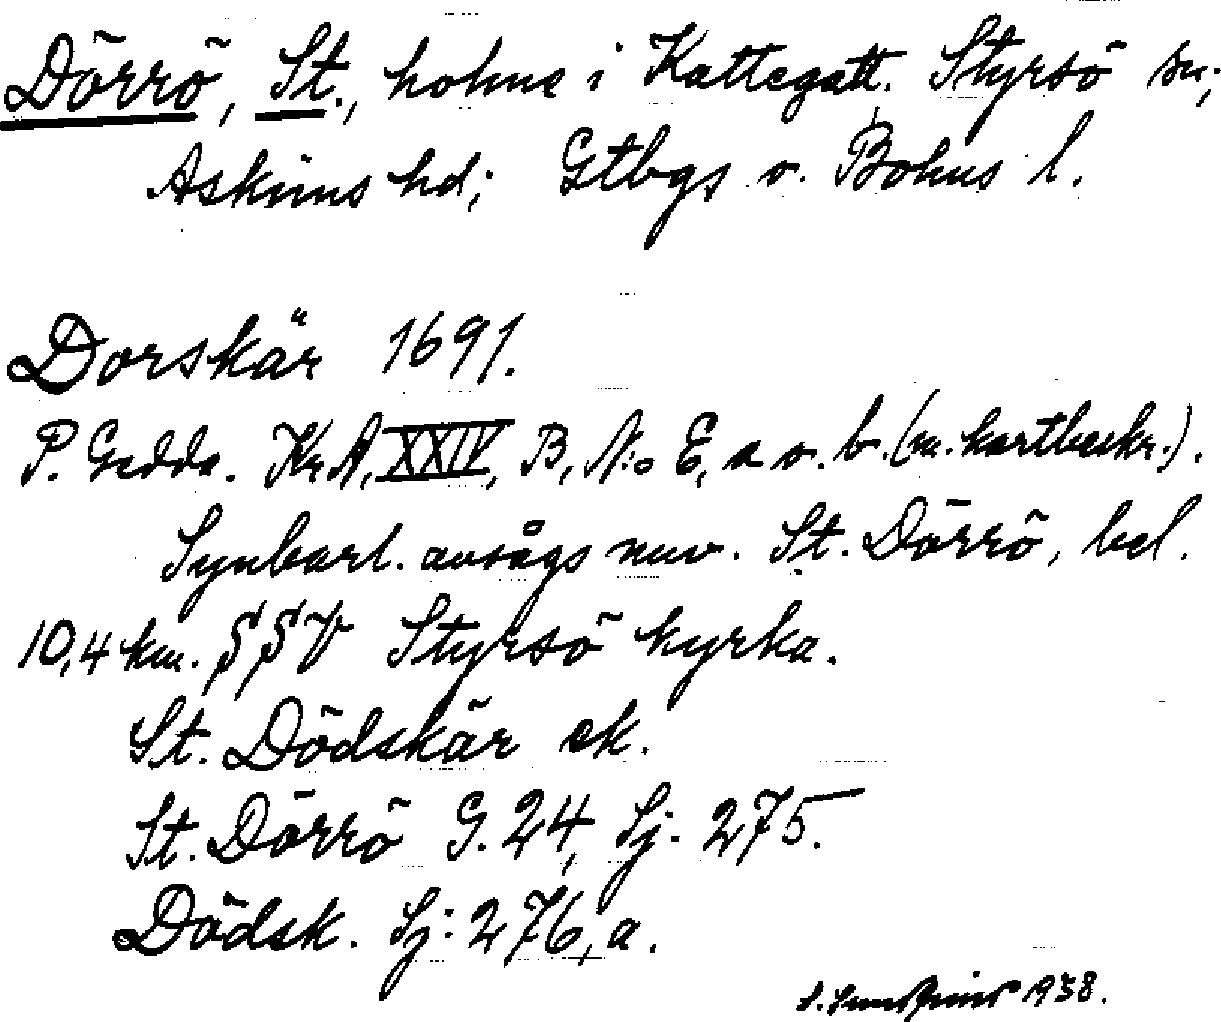 Dörrö, St., holme i Kattegatt. Styrsö sn;
Askims hd; Gtbgs o. Bohus l.
Dorskär 1691.
P. Gedda. Kr.A, XXIV, B, N:o E, a o. b (m. kartbeskr.).
Synbarl. avsågs nuv. St. Dörrö, bel.
10,4 km. SSV Styrsö kyrka.
St. Dödskär ek.
St. Dörrö G. 24, Sj. 275.
Dödsk. Sj: 276, a.
1938.